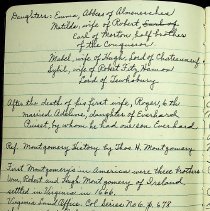 Daughters: Emma, Abbess of Almenesches
Matilda, wife of Robert,
Earl of Morton half brother
of the Conqueror
Mabel, wife of Hugh, Lord of Chateauneuf
Sybil, wife of Robert Fitz Hamon
Lord of Tewksbury
After the death of his first wife, Roger, 6 th
married Adeline, daughter of Everhard
Puiset, by whom he had our son Everhard.
Ref. Montgomery History, by Thos. H. Montgomery
First Montgomerys in America were three brothers
Wm, Robert and Hugh Montgomery, of Ireland
settled in Virginia in c. 1666.
Virginia Land Office, Col. Series No 6, p. 678